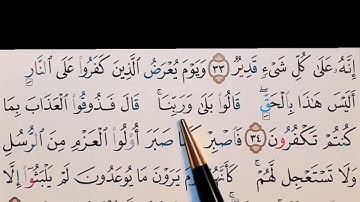 إِنَّهُۥ عَلَىٰ كُلِّ شَىْءٍ قَدِيرٌ ٣٣ وَيَوْمَ يُعْرَضُ ٱلَّذِينَ كَفَرُوا۟ عَلَى ٱلنَّارِ
أَلَيْسَ هَٰذَا بِٱلْحَقِّ ۖ قَالُوا۟ بَلَىٰ وَرَبِّنَا ۚ قَالَ فَذُوقُوا۟ ٱلْعَذَابَ بِمَا
كُنتُمْ تَكْفُرُونَ ٣٤ فَٱصْبِرْ كَمَا صَبَرَ أُو۟لُوا۟ ٱلْعَزْمِ مِنَ ٱلرُّسُلِ
وَلَا تَسْتَعْجِل لَّهُمْ ۚ كَأَنَّهُمْ يَوْمَ يَرَوْنَ مَا يُوعَدُونَ لَمْ يَلْبَثُوٓا۟ إِلَّا